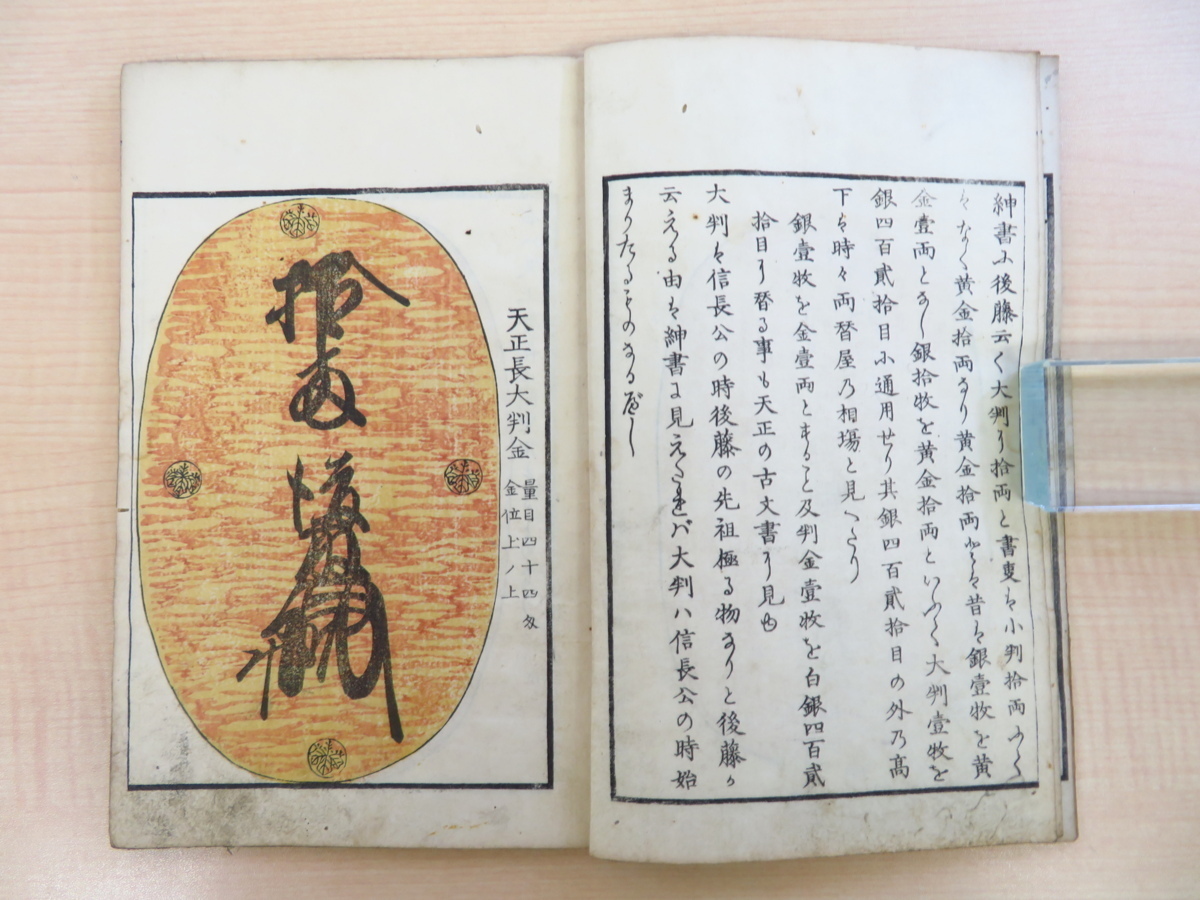 紳書ニ後藤云く大判ハ拾両と書更は小判拾両ふく
なく黄金拾両なり黄金拾両とは昔は銀壹牧を黄
金壹両とし銀拾牧を黄金拾両といふく大判壹牧を
銀四百貳拾目小通用せり其銀四百貳拾目の外乃高
下は時々両替屋乃相場と見へたり
銀壹牧を金壹両とする
こと及判金壹牧を白銀四百貳
拾目り替る事も天正の古文書り見ゆ
大判は信長公の時後藤の先祖極る物なりと後藤か
云える由は紳書に見えたれバ大判ハ信長公の時始
まりたるものなるべし
天正長大判金
量目四十四匁
金位上ノ上
拾両
後藤